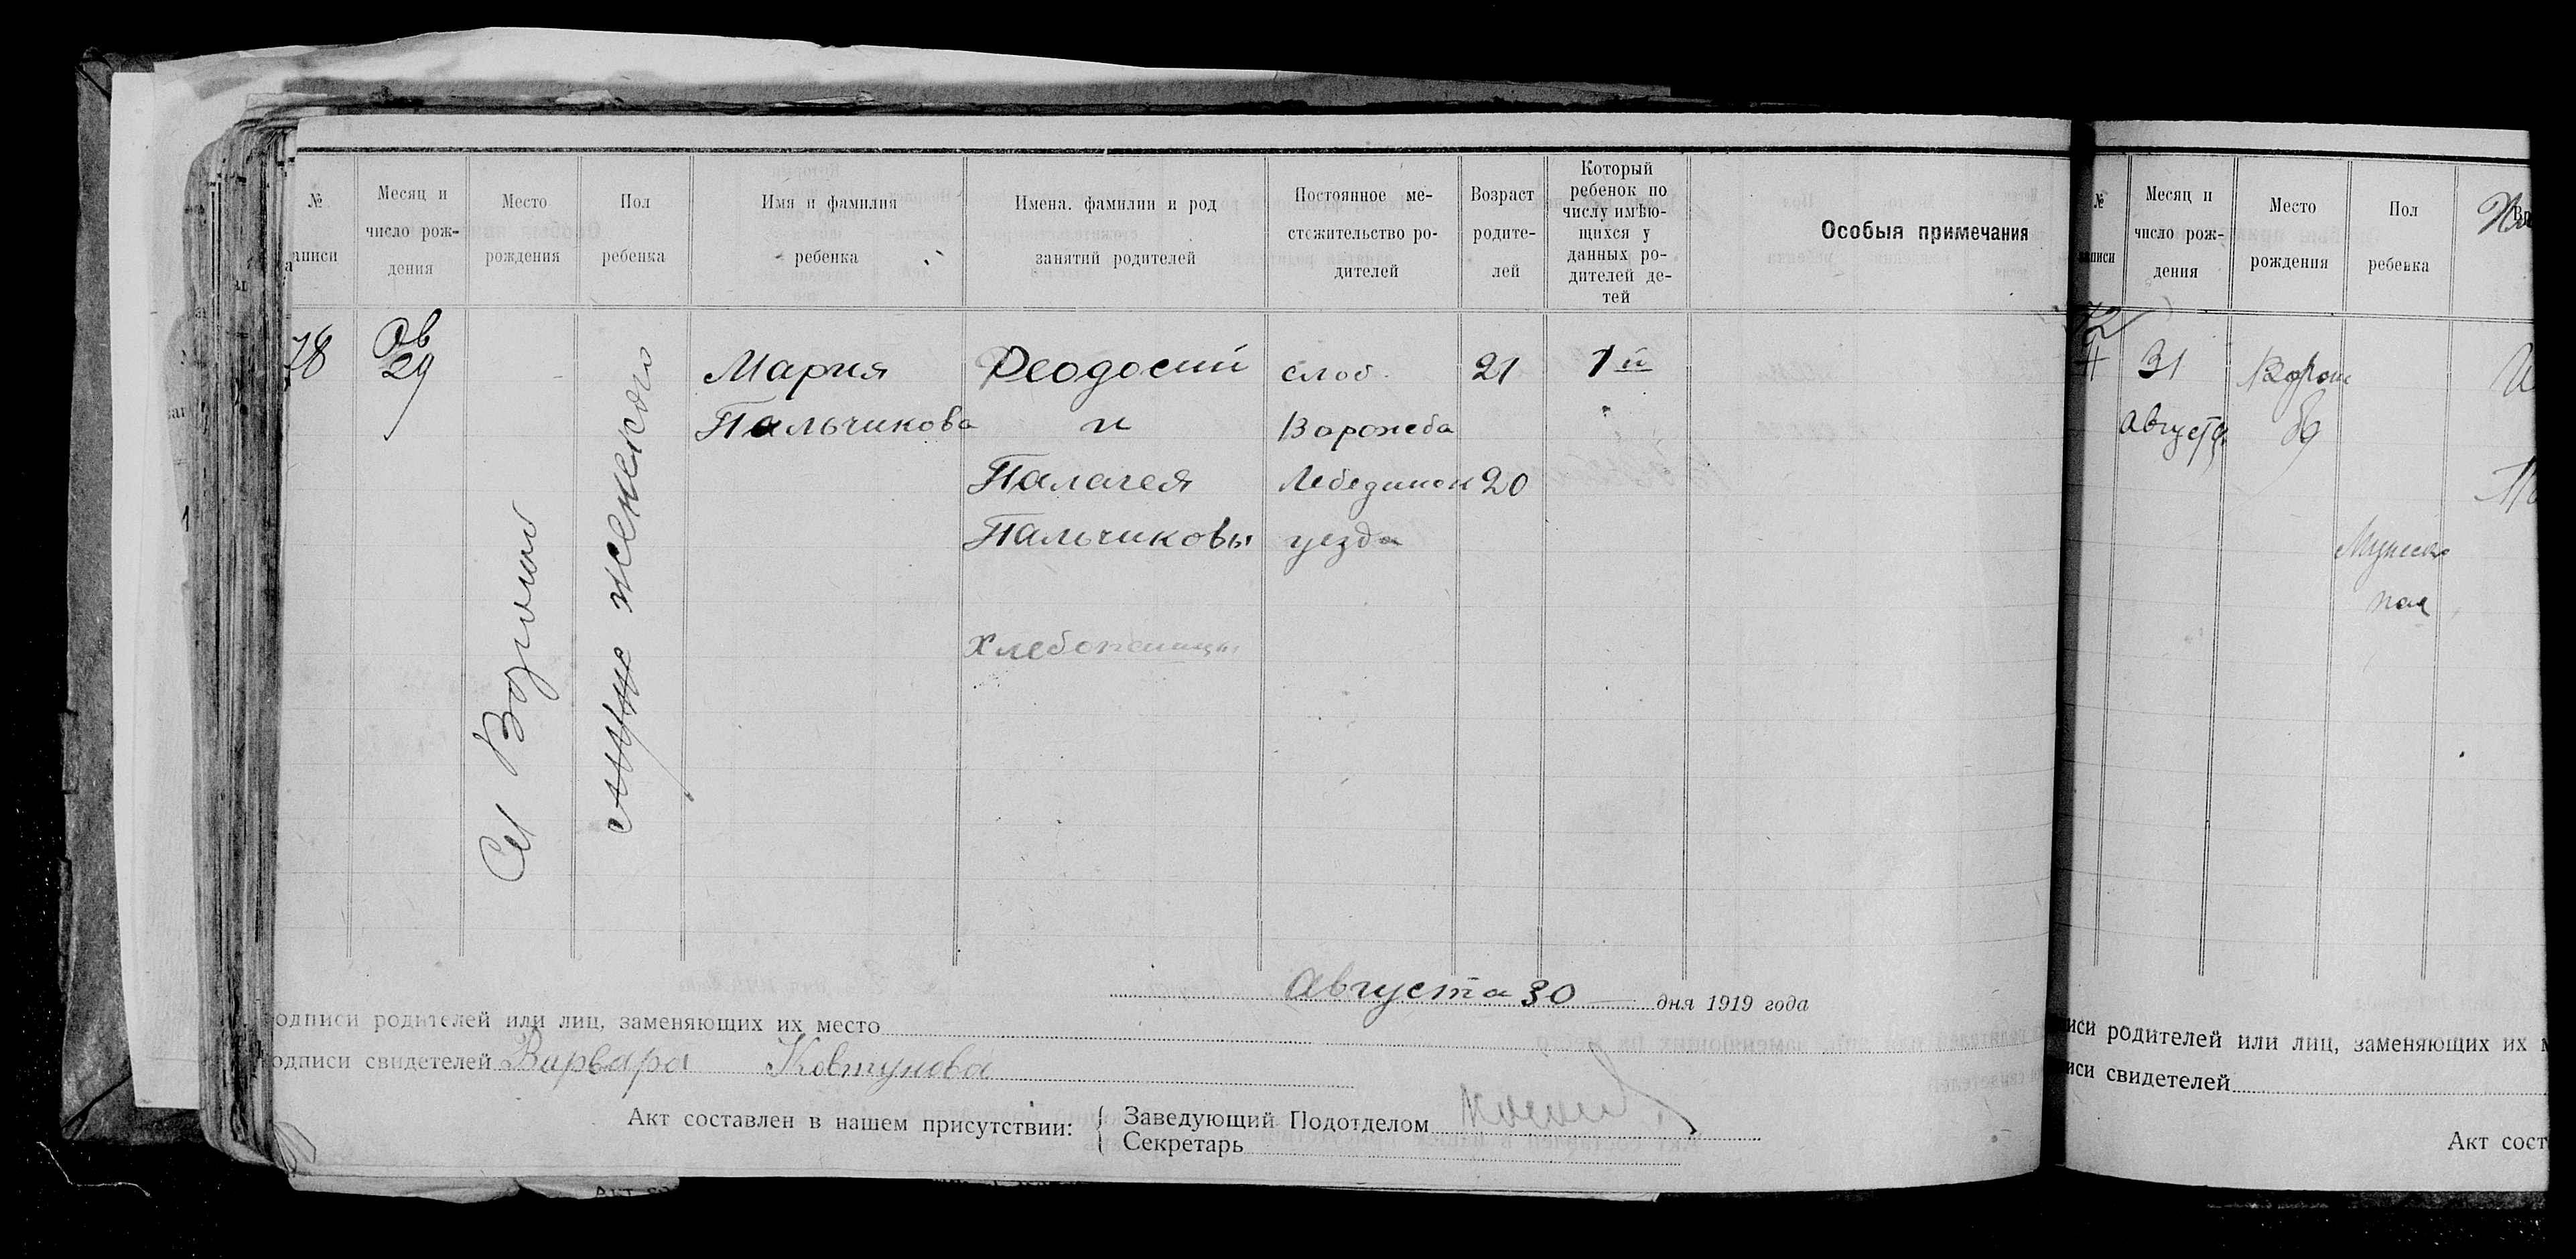 № аписи
Месяц и число рождения
Место рождения
Пол ребенка
Имя и фамилия ребенка
Имена, фамилии и род занятий родителей
Постоянное местожительство родителей
Возраст родителей
Который ребенок по числу имѣющихся у данных родителей детей
Особыя примечания
78
Ав
29
Сл
мужс женского
Мария
Пальчикова
Феодосий
и
Палагея
Пальчиковы
Хлебопашцы
слоб.
Ворожеба
Лебединск
уезда
21
20
1й
Августа 30 дня 1919 года
одписи родителей или лиц, заменяющих их место
одписи свидетелей Варвара Ковтунова
Акт составлен в нашем присутствии:
Заведующий Подотделом
Секретарь
№ аписи
Месяц и число рождения
Место рождения
Пол ребенка
31
августа
Ворож
ба
Мужска
пола
иси родителей или лиц, заменяющих их м
иси свидетелей
Акт сост